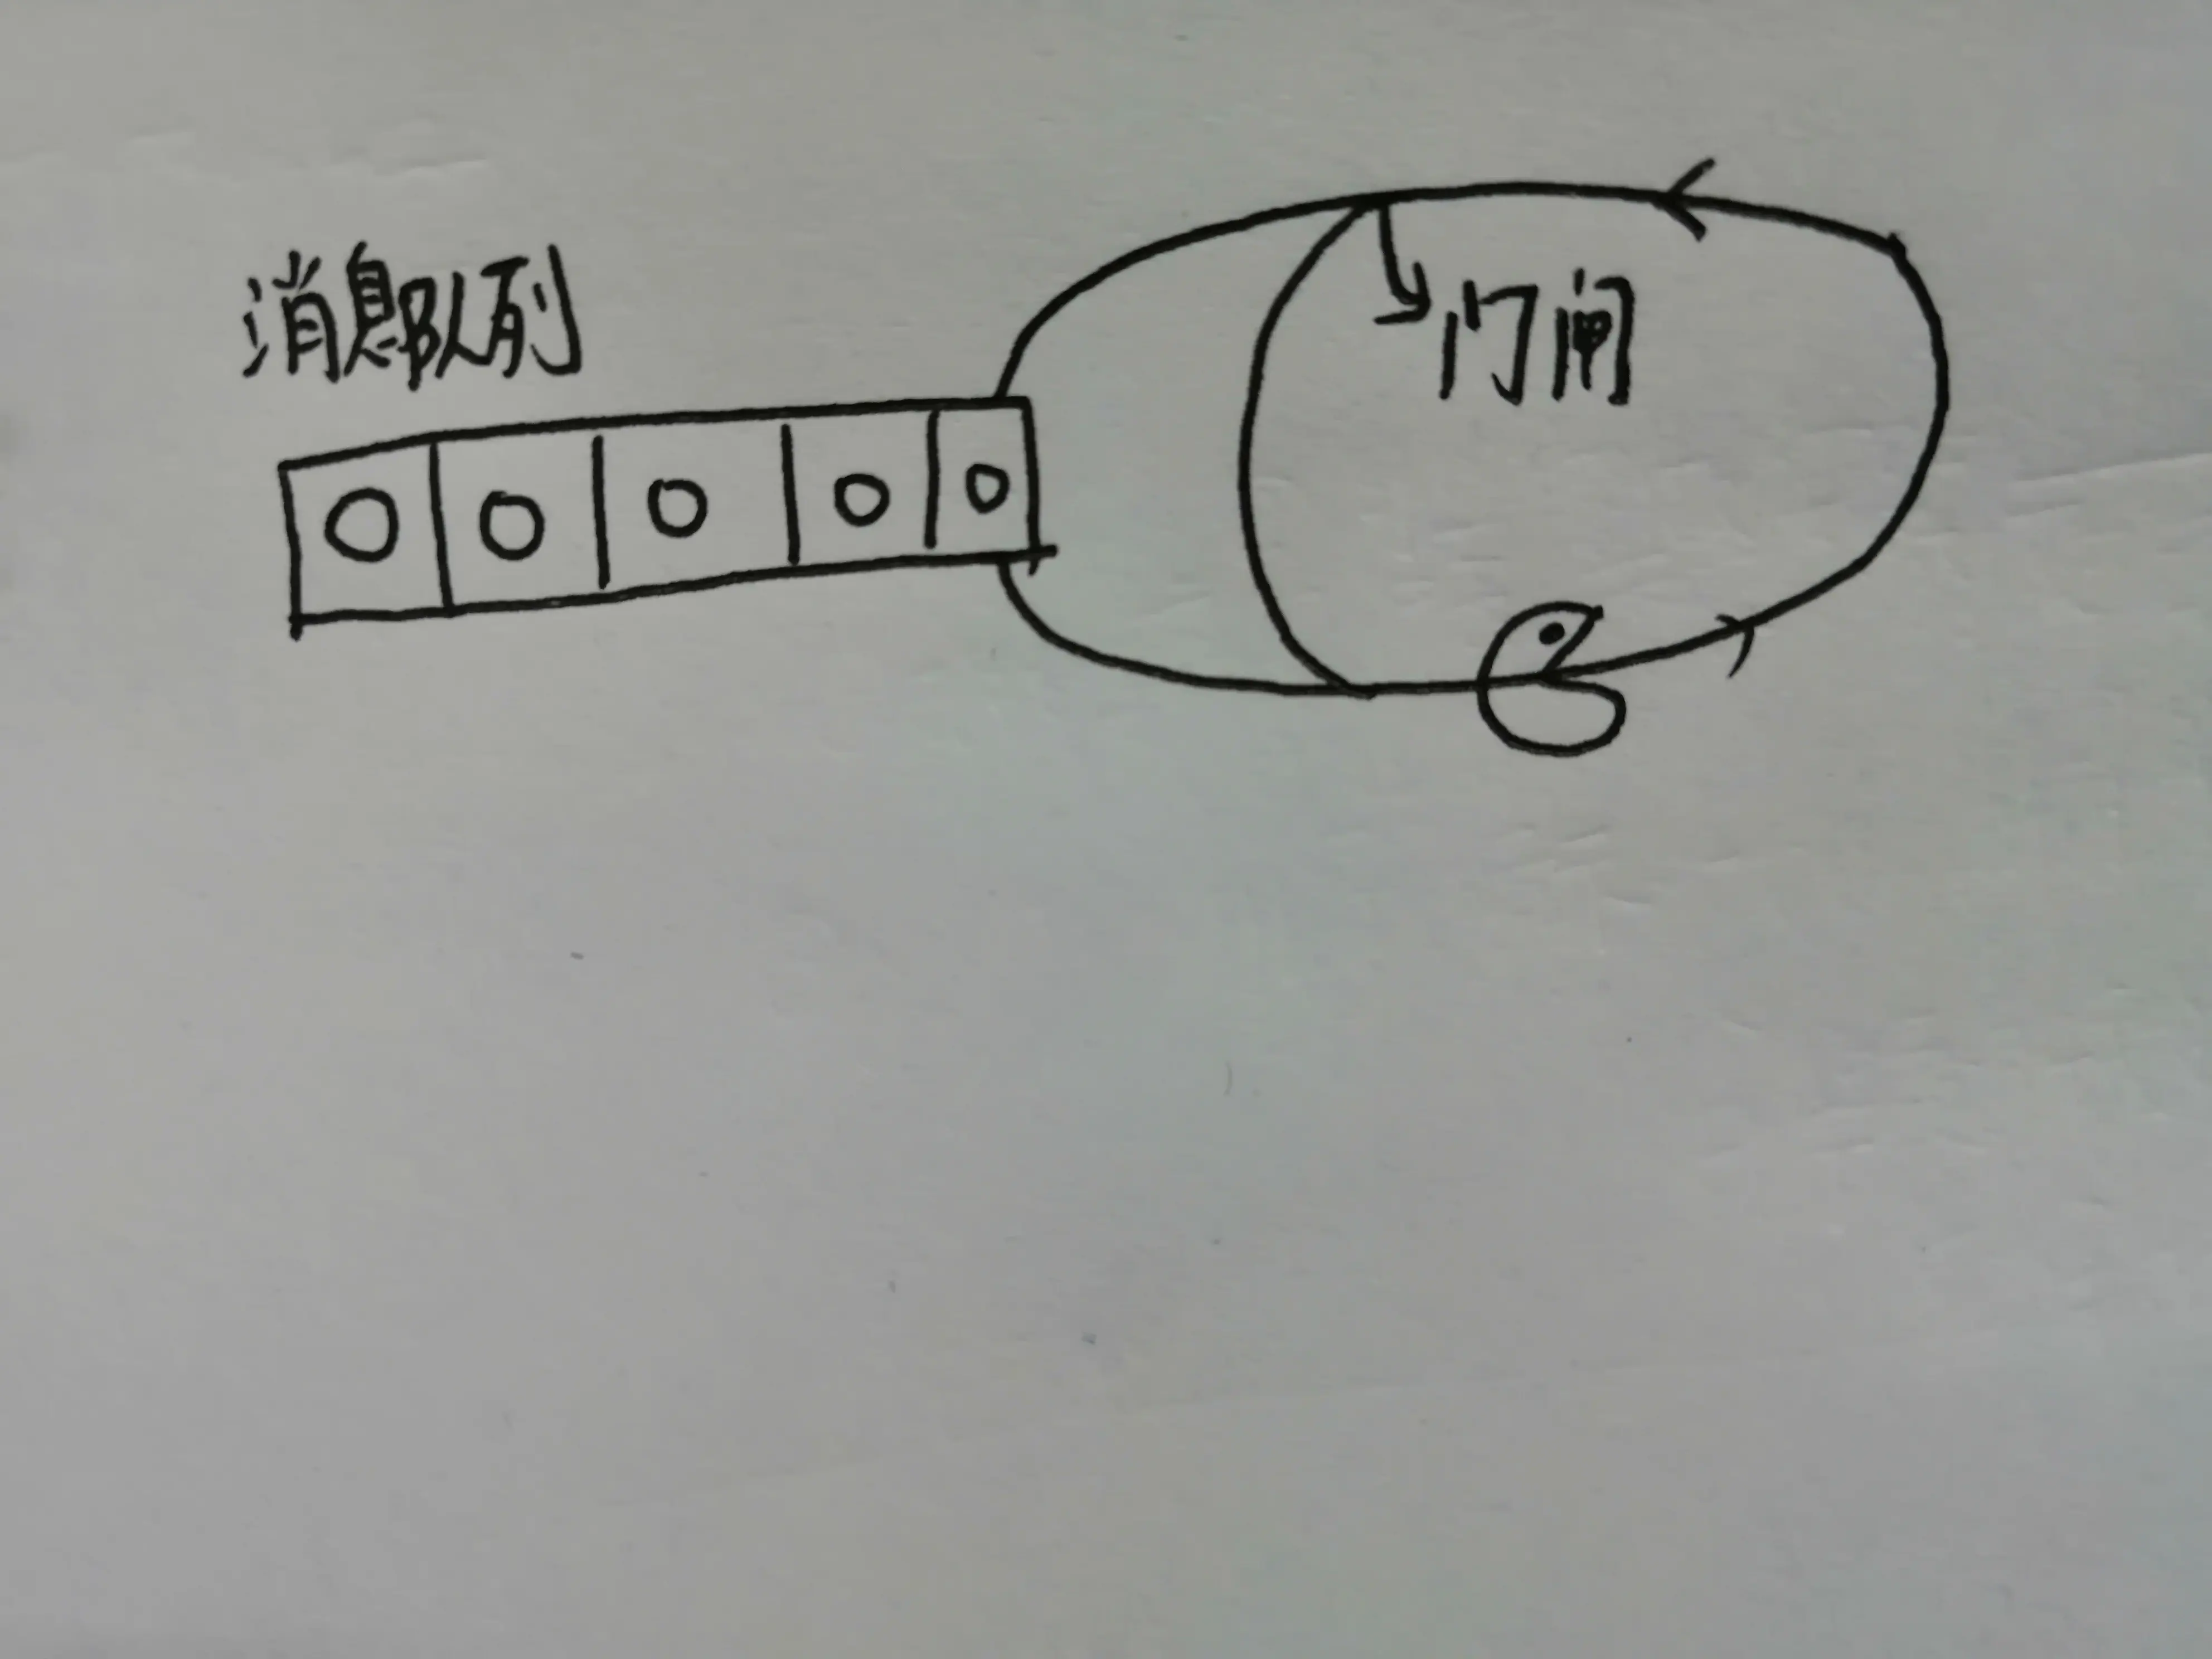 消息队列
门闸